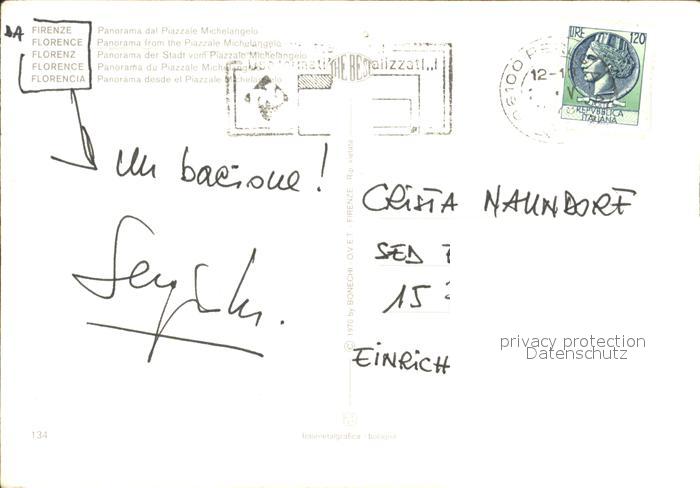 DA FIRENZE Panorama dal Piazzale Michelangelo
FLORENCE Panorama from the Piazzale Michelangelo
FLORENZ Panorama der Stadt vom Piazzale Michelangelo
FLORENCE Panorama du Piazzale Michelangelo
FLORENCIA Panorama desde el Piazzale Michelangelo
THE BEST
LIRE 120
REPVBBLICA
ITALIANA
12-1
un bacione!
CRISTA NAUNDORF
SED
15
EINRICH
© 1970 by BONECHI · O.V.E.T. FIRENZE · Rip. vietata
privacy protection
Datenschutz
134
italmetalgrafica · bologna